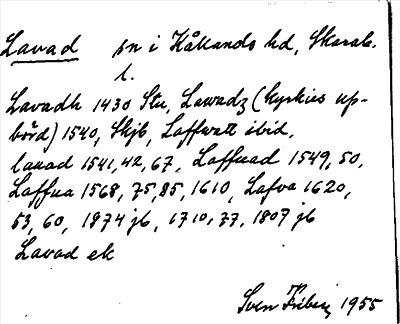 Lavad sn i Kållands hd, Skarab.
l.
Lavadh 1430 Stu, Lawadz (kyrkies up-
börd) 1540, Skjb, Laffwatt ibid,
lauad 1541, 42, 67, Laffuad 1549, 50,
Laffua 1568, 75, 85, 1610, Lafva 1620,
53, 60, 1874 jb, 1710, 77, 1807 jb
Lavad ek
Sven 1955